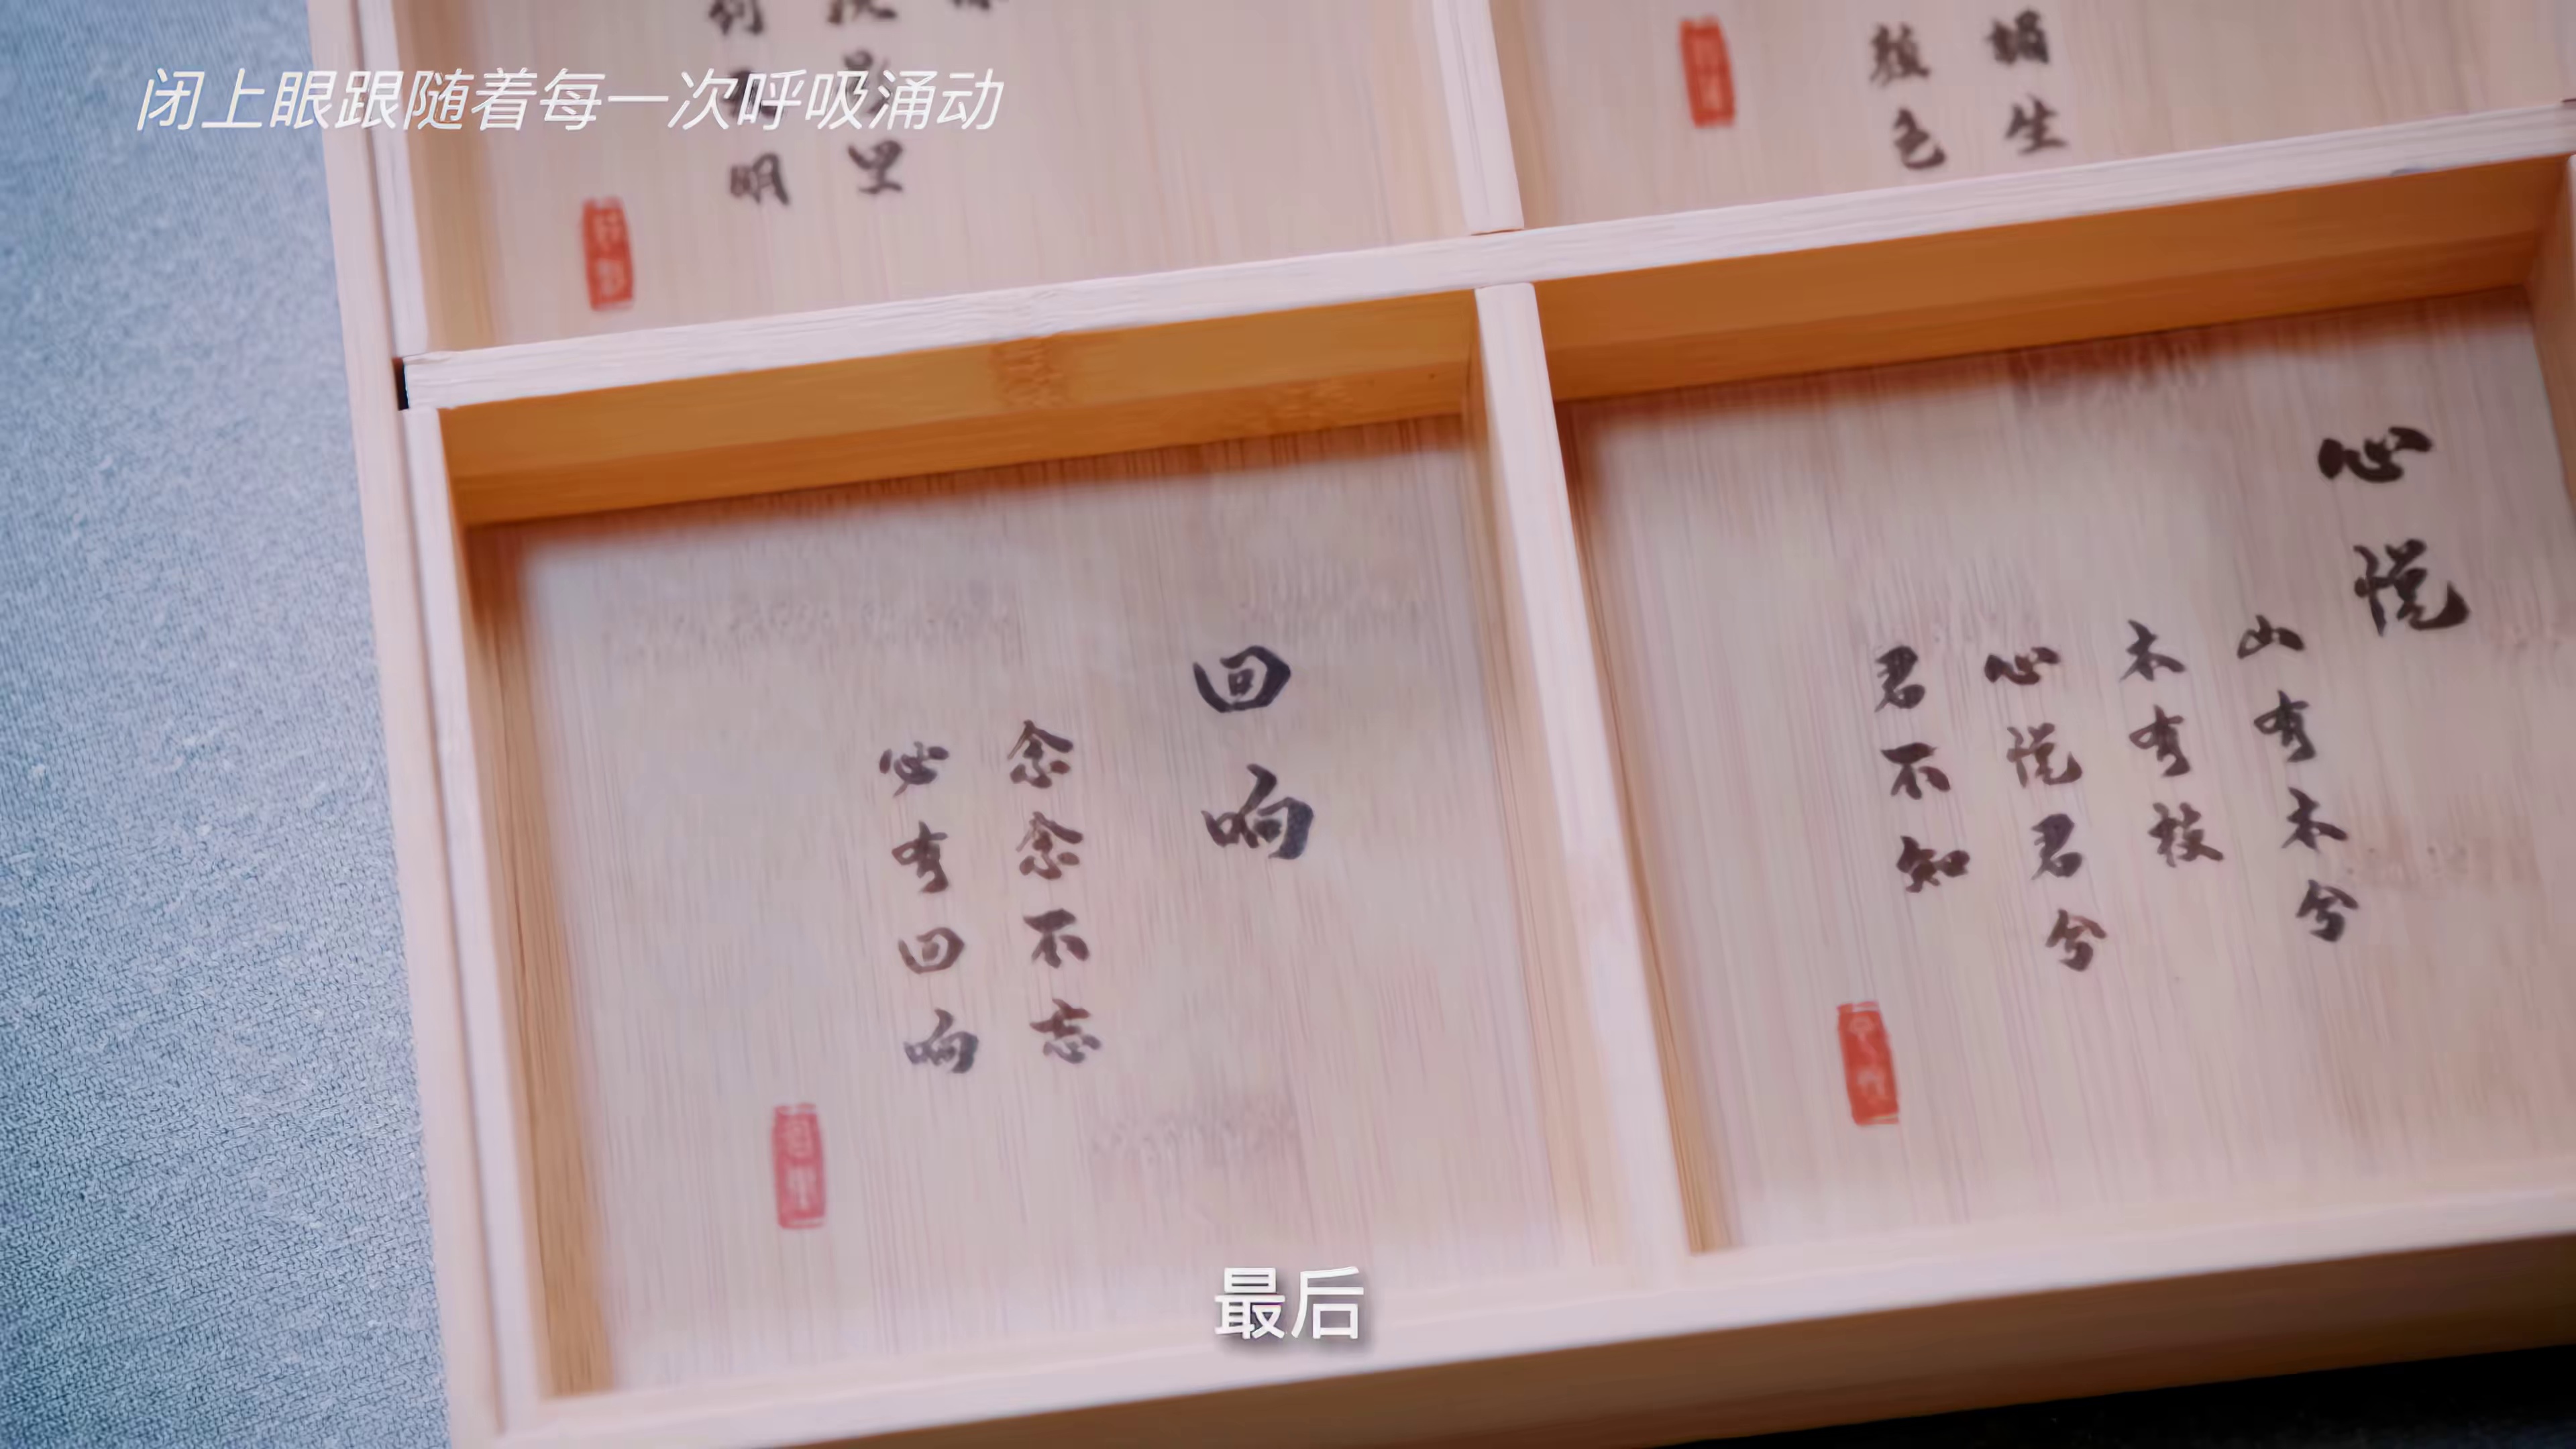 闭上眼跟随着每一次呼吸涌动
里
明
娟生
颜色
心悦
山有木兮
木有枝
心悦君兮
君不知
回响
念念不忘
必有回响
最后